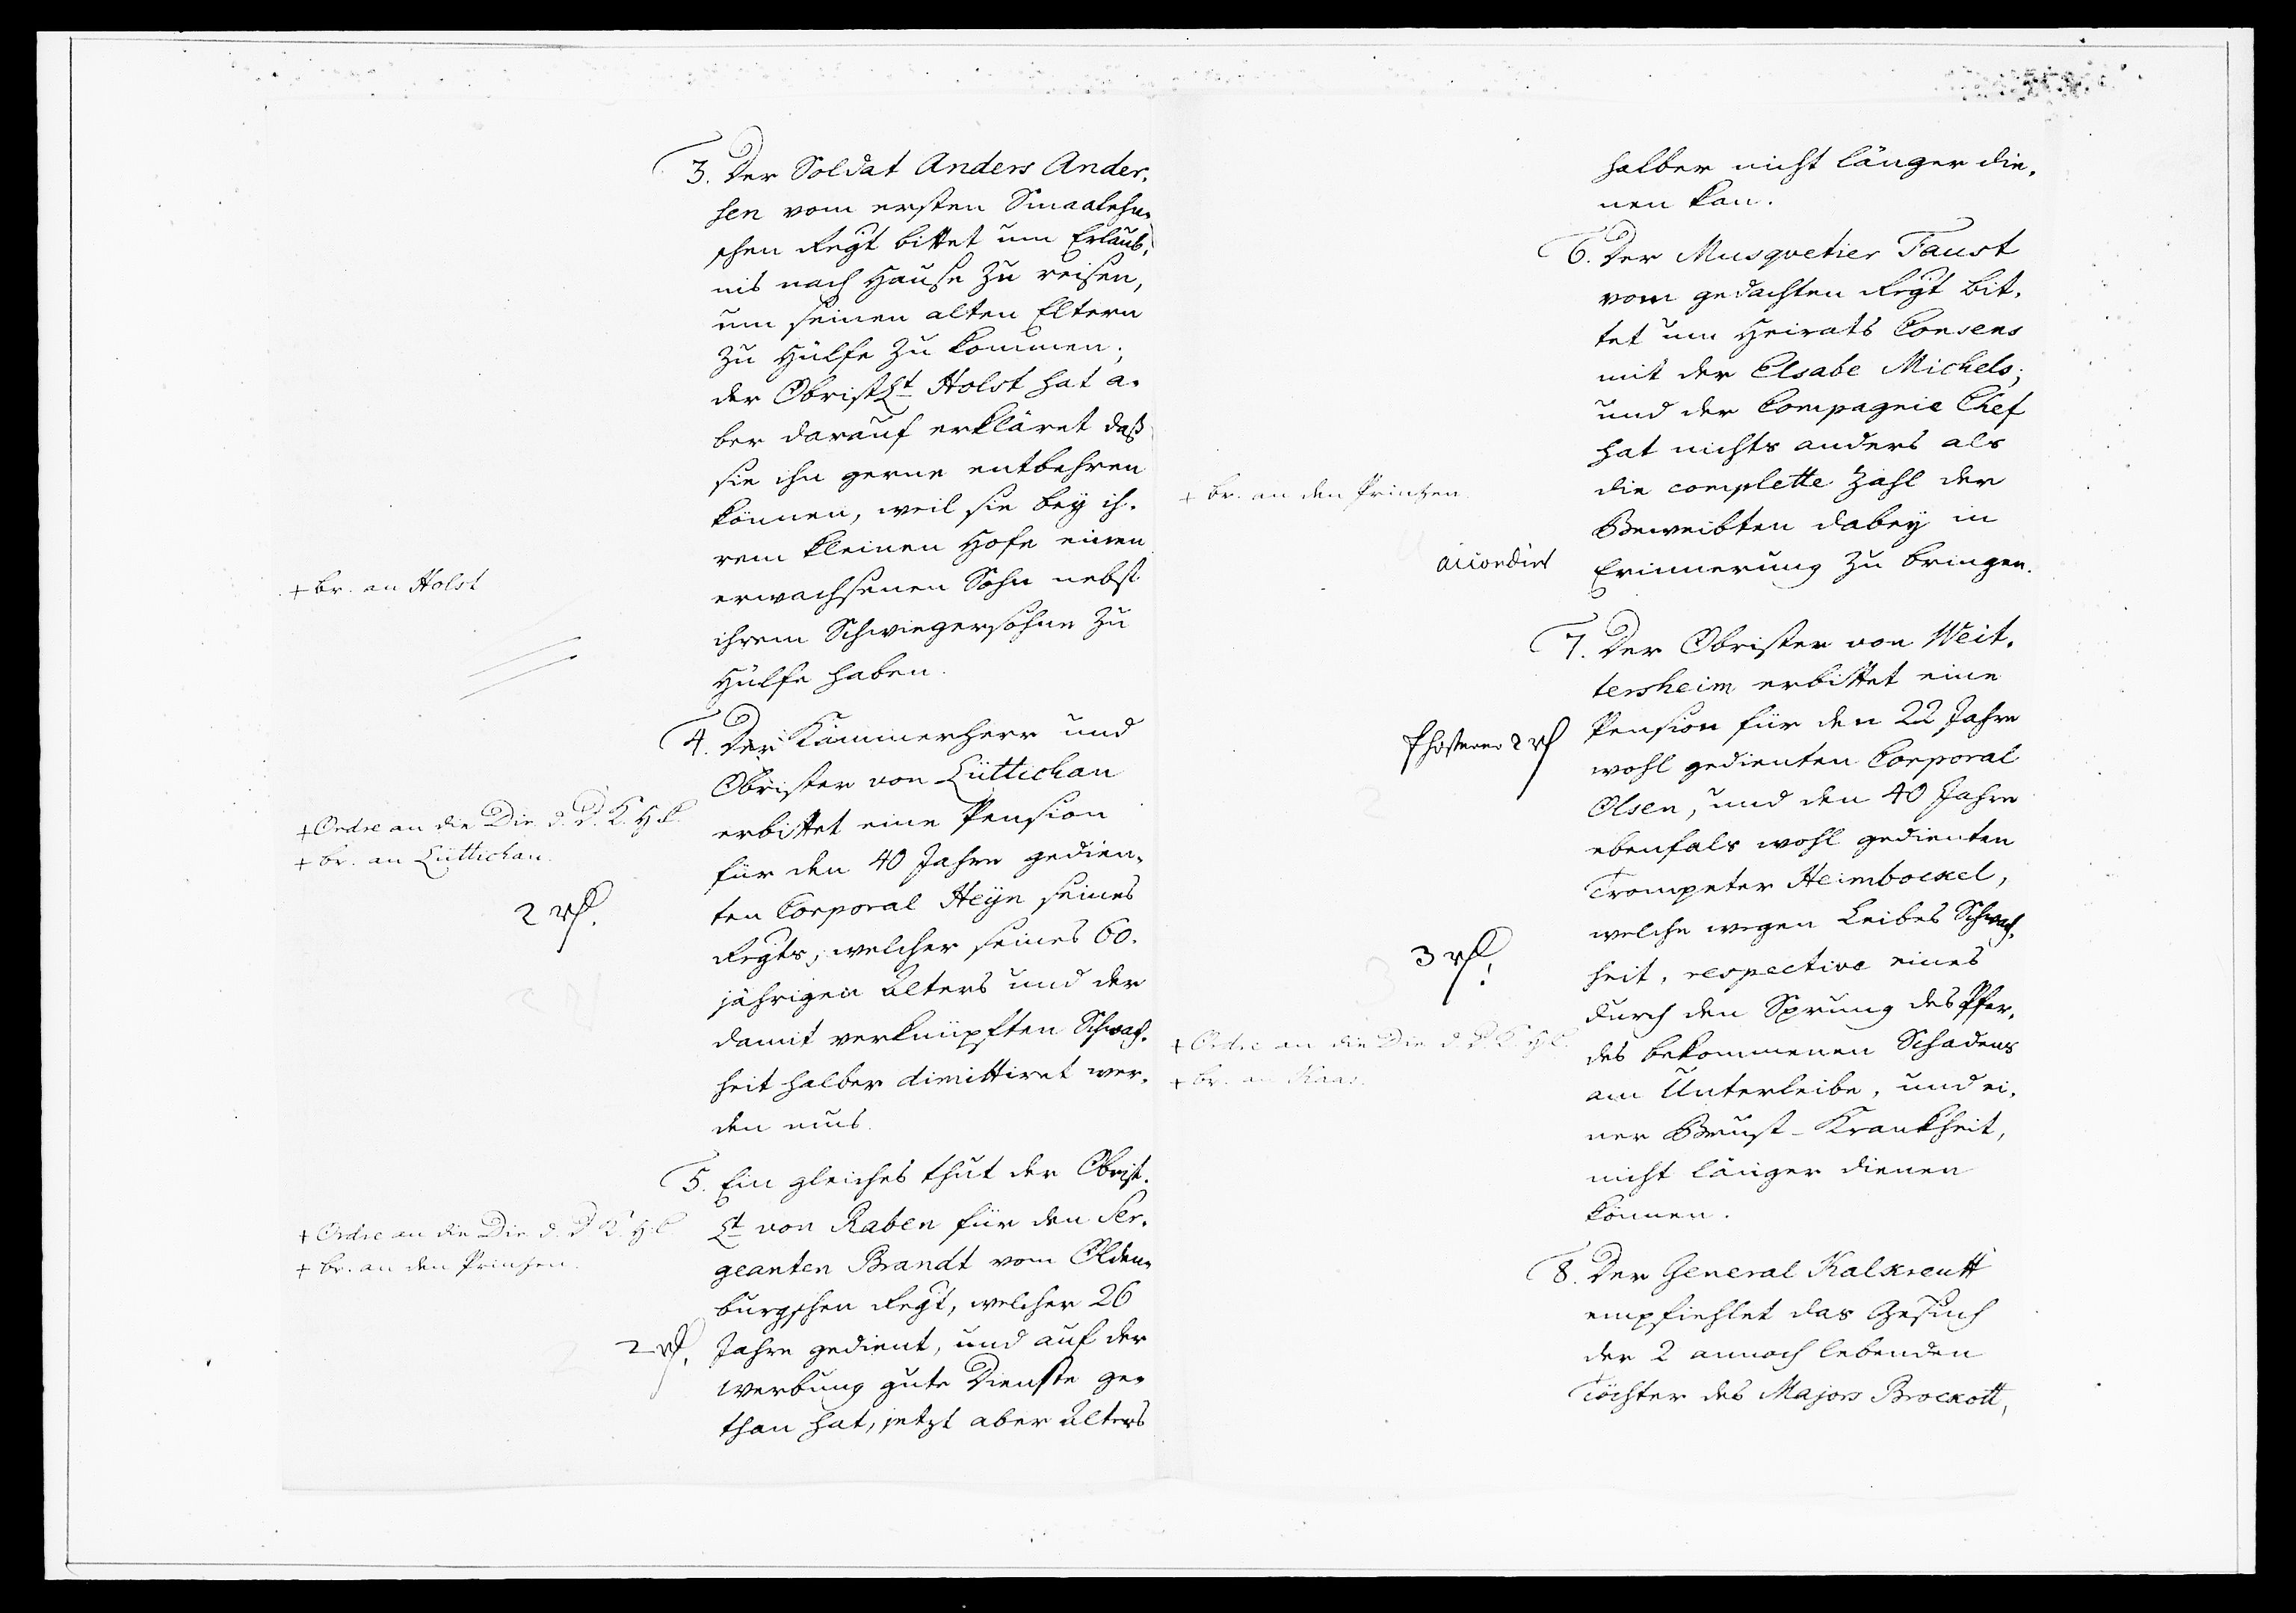 3. Der Soldat Anders Ander-
sen vom ersten Smaalehn-
schen Regt bittet um Erlaub-
nis nach Hause zu reisen,
um seinen alten Eltern
zu Hülfe zu kommen;
der ObristLt Holst hat a-
ber darauf erkläret daß
sie ihn gerne entbehren
können, weil sie bey ih-
rem kleinen Hofe einen
erwachsenen Sohn nebst
ihrem Schwiegersohne zu
Hülfe haben.
+ br. an Holst
4. Der Kammerherr und
Obrister von Lüttichau
erbittet eine Pension
für den 40 Jahre gedien-
ten Corporal Heyn seines
Regts, welcher seines 60-
jährigen Alters und der
damit verknüpften Schwach-
heit halber dimittiret wer-
den mus.
+ Ordre an die Dir. d. D. K. H. C.
+ br. an Lüttichau.
2 rf.
5. Ein gleiches thut der Obrist-
Lt von Raben für den Ser-
geanten Brandt vom Olden-
burgschen Regt, welcher 26
Jahre gedient, und auf der
Werbung gute Dienste ge-
than hat, jetzt aber Alters
+ Ordre an die Dir. d. D. K. H. C.
+ br. an den Prinzen.
2 rf.
halber nicht länger die-
nen kan.
6. Der Musqvetier Faust
vom gedachten Regt bit-
tet um Heirats Consens
mit der Elsabe Michels;
und der Compagnie Chef
hat nichts anders als
die complette Zahl der
Beweibten dabey in
Erinnerung zu bringen.
+ br. an den Printzen.
accordirt
7. Der Obrister von Weit-
tersheim erbittet eine
Pension für den 22 Jahre
wohl gedienten Corporal
Olsen, und den 40 Jahre
ebenfals wohl gedienten
Trompeter Heimbockel,
welche wegen Leibes Schwach-
heit, respective eines
durch den Sprung des Pfer-
des bekommenen Schadens
am Unterleibe, und ei-
ner Brust-Krankheit,
nicht länger dienen
können.
2 rf
3 rf.
+ Ordre an die Dir. d. D. K. H. C.
+ br. an Kaas.
8. Der General Kalkreutt
empfiehlet das Gesuch
der 2 annoch lebenden
Töchter des Majors Brockott,